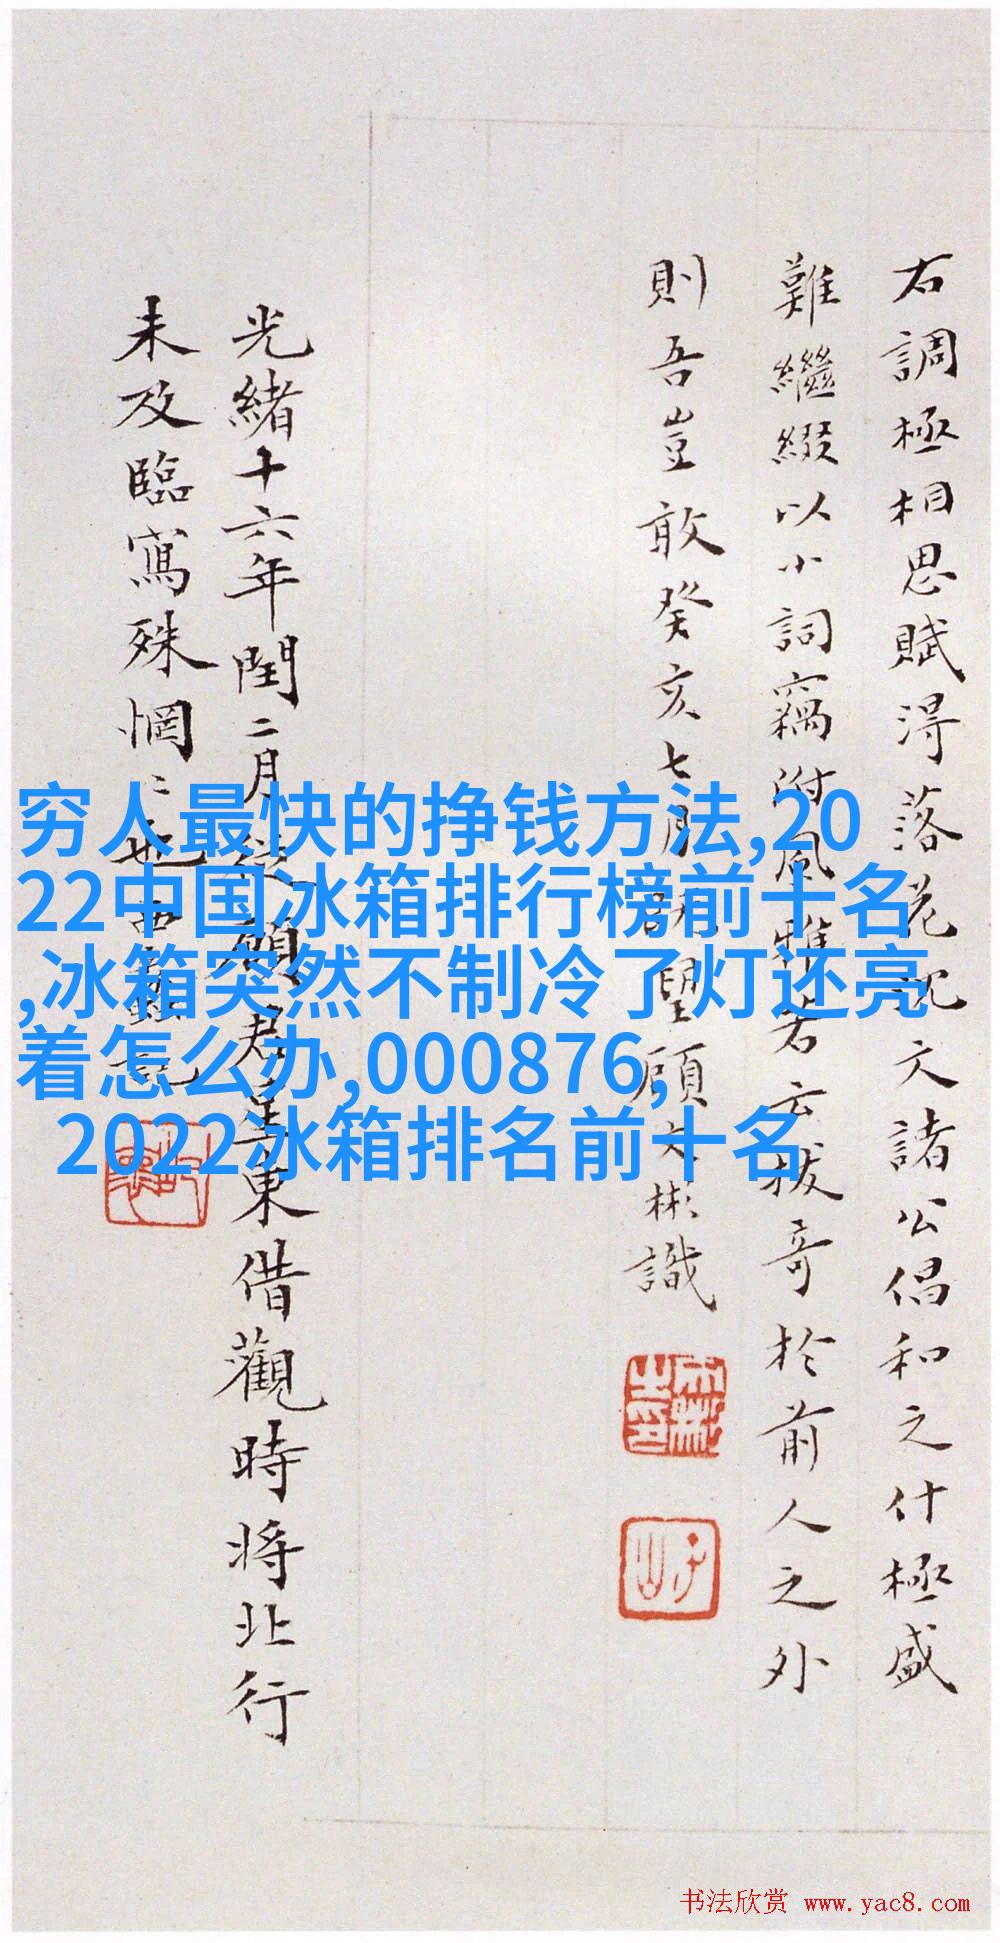 右調極相思賦得落花沈文諸公倡和之什極盛
難繼綴以小詞竊附風雅若云拔奇於前人之外
則吾豈敢癸亥七月既望顧大彬識
光緒十六年閏二月從顧君星東借觀時將北行
未及臨寫殊惘二也
穷人最快的挣钱方法,20
22中国冰箱排行榜前十名
,冰箱突然不制冷了灯还亮
着怎么办,000876,
2022冰箱排名前十名
书法欣赏 www.yac8.com